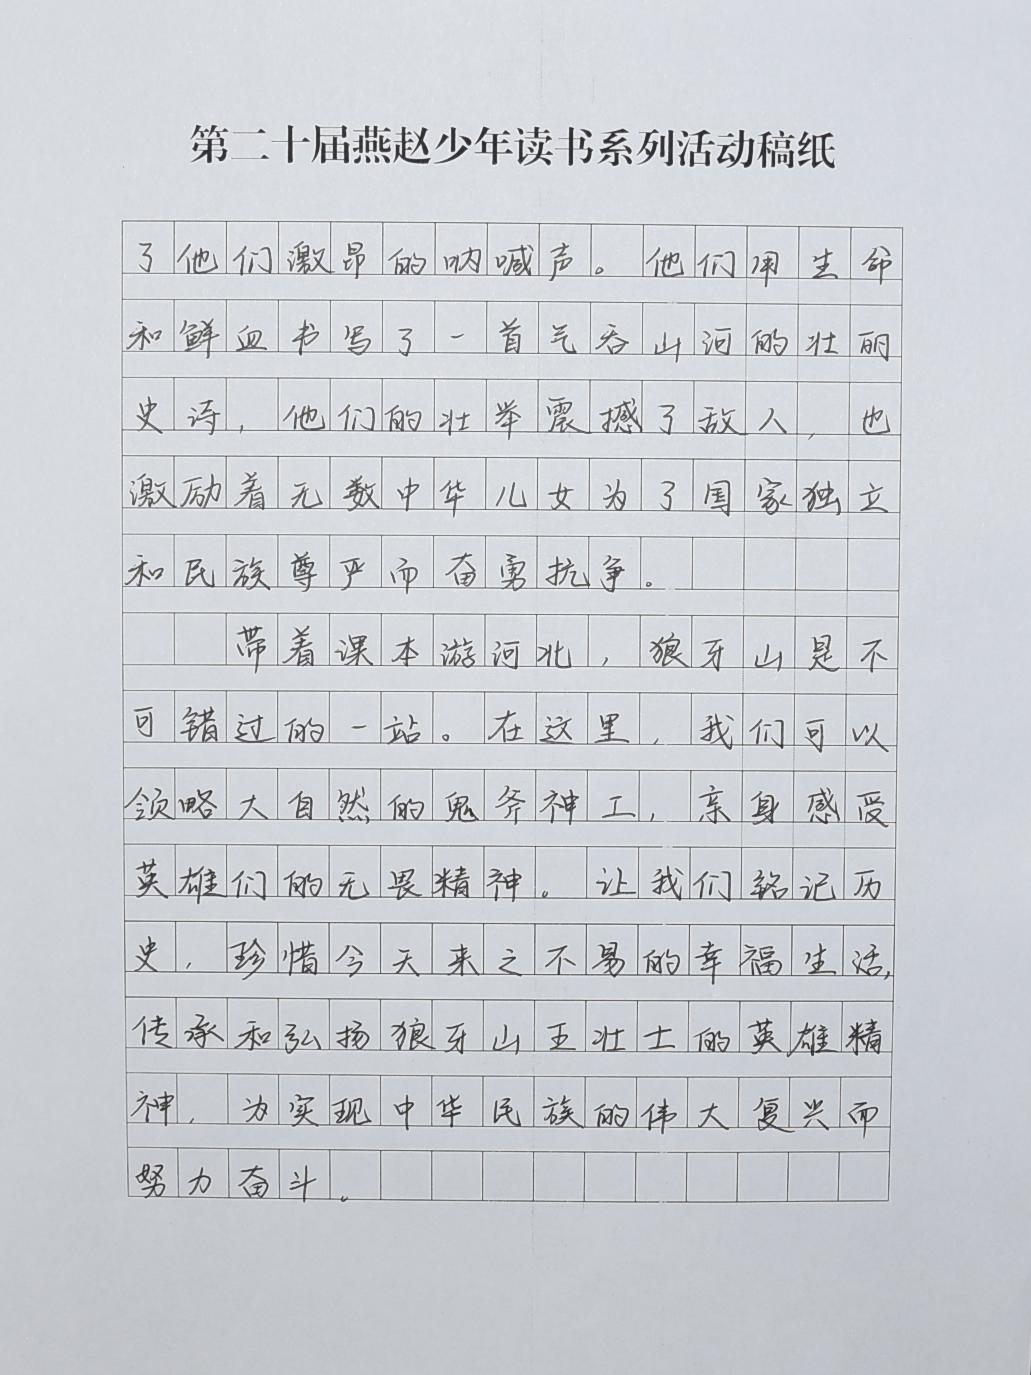 第二十届燕赵少年读书系列活动稿纸
了他们激昂的呐喊声。他们用生命
和鲜血书写了一首气吞山河的壮丽
史诗，他们的壮举震撼了敌人，也
激励着无数中华儿女为了国家独立
和民族尊严而奋勇抗争。
带着课本游河北，狼牙山是不
可错过的一站。在这里，我们可以
领略大自然的鬼斧神工，亲身感受
英雄们的无畏精神。让我们铭记历
史，珍惜今天来之不易的幸福生活，
传承和弘扬狼牙山王壮士的英雄精
神，为实现中华民族的伟大复兴而
努力奋斗。